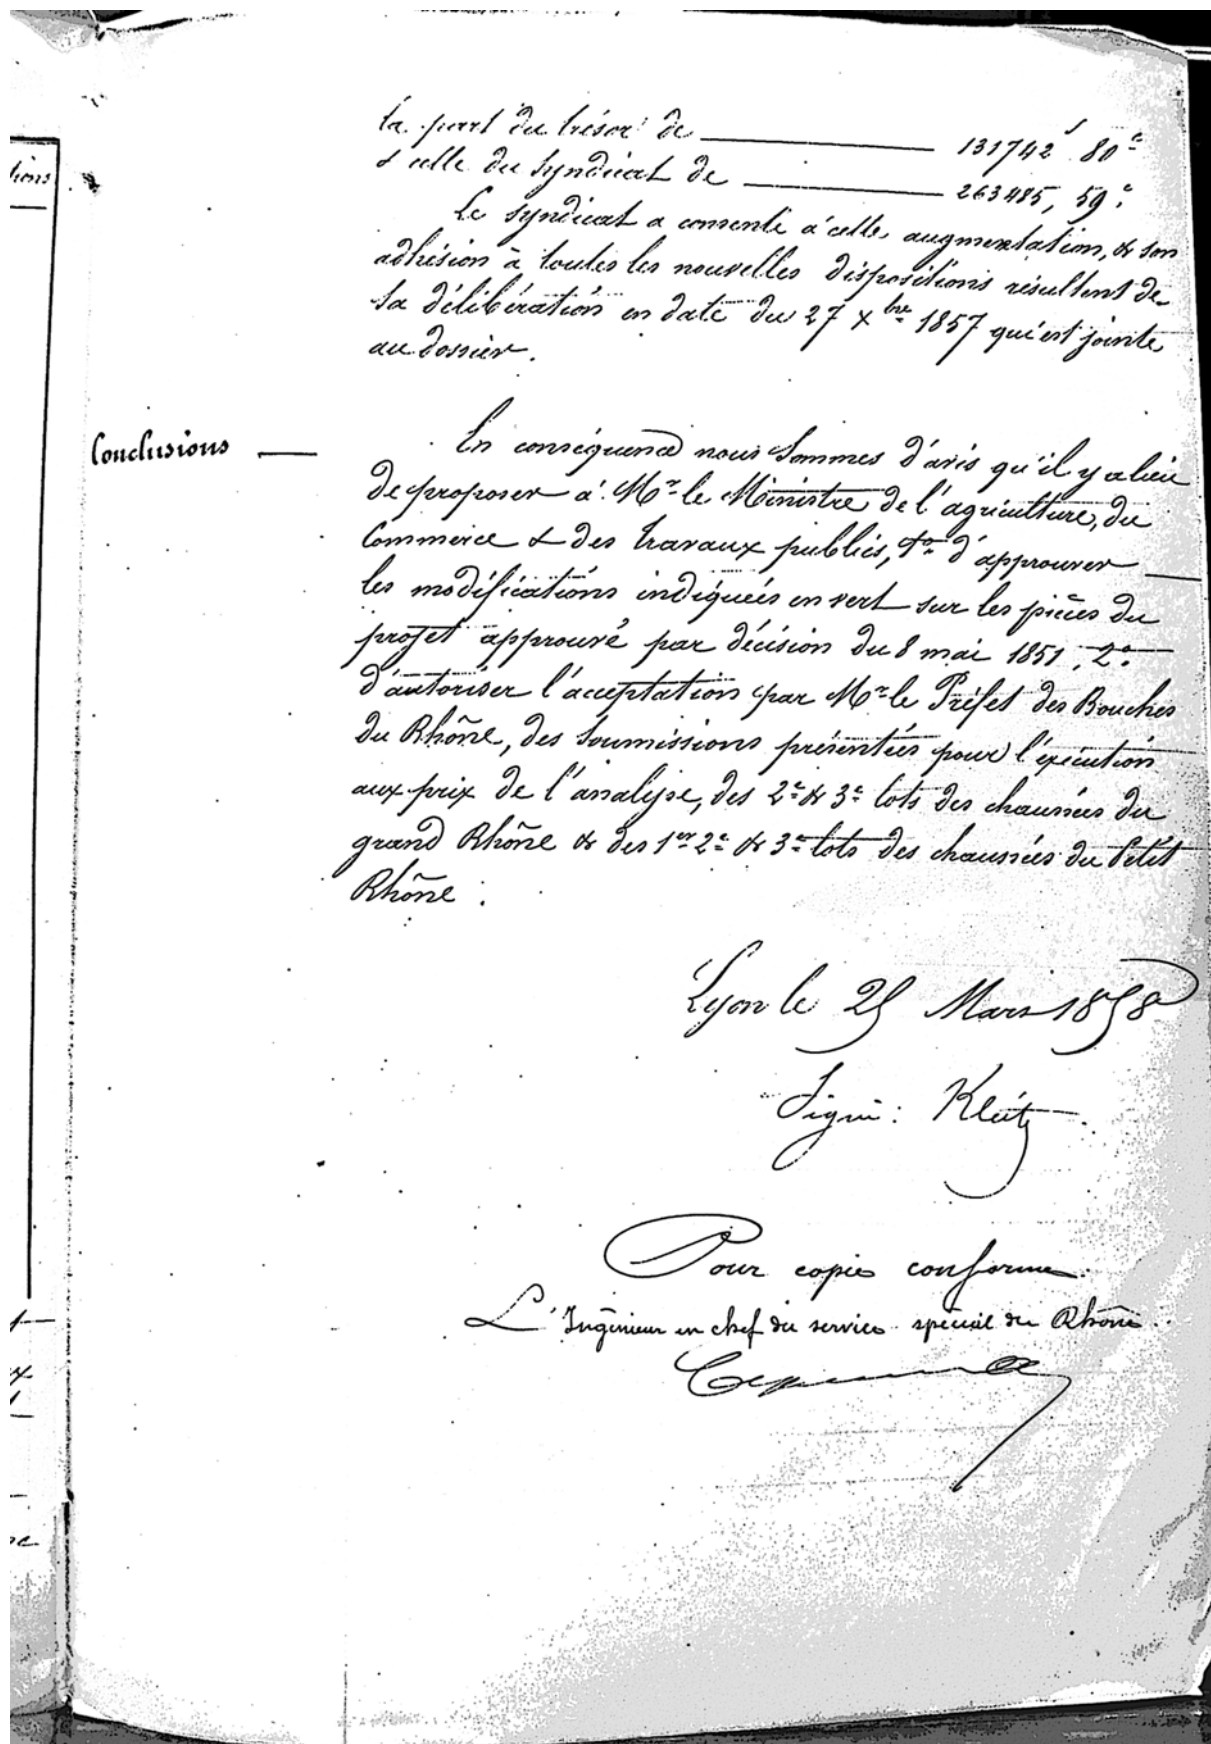 la part du trésor de ——— 131742f 80c
& celle du Syndicat de ——— 263485, 59c
Le Syndicat a consenti à cette augmentation, & son
adhésion à toutes les nouvelles dispositions résultent de
sa délibération en date du 27 Xbre 1857 qui est jointe
au dossier.
Conclusions —
En conséquence nous Sommes d'avis qu'il y a lieu
de proposer à Mr le Ministre de l'agriculture, du
Commerce & des travaux publics, 1o d'approuver —
les modifications indiquées en vert sur les pièces du
projet approuvé par décision du 8 mai 1851, 2o
d'autoriser l'acceptation par Mr le Préfet des Bouches
du Rhône, des Soumissions présentées pour l'exécution
aux prix de l'analyse, des 2e & 3e lots des chaussées du
grand Rhône & des 1er 2e & 3e lots des chaussées du Petit
Rhône.
Lyon le 25 Mars 1858
Signé: Kleitz
Pour copie conforme
L'Ingénieur en chef du service spécial du Rhône
tions